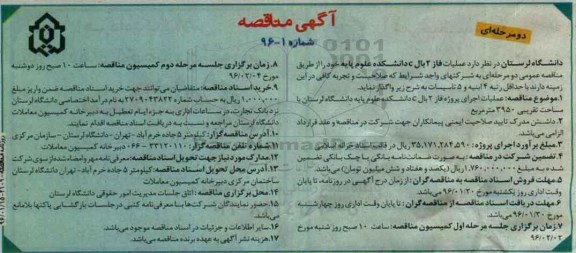 آگهی مناقصه
شماره ۱-۹۶
دومرحله‌ای
دانشگاه لرستان در نظر دارد عملیات فاز ۲ بال c دانشکده علوم پایه خود را از طریق
مناقصه عمومی دو مرحله‌ای به شرکتهای واجد شرایط که صلاحیت و تجربه کافی در این
زمینه دارند با حداقل رتبه ۴ ابنیه و ۵ تاسیسات به شرح زیر واگذار نماید.
۱.موضوع مناقصه: عملیات اجرای پروژه فاز ۲ بال c دانشکده علوم پایه دانشگاه لرستان با
مساحت تقریبی ۳۹۵۰ مترمربع
۲.داشتن مدارک تایید صلاحیت ایمنی پیمانکاران جهت شرکت در مناقصه و عقد قرارداد
الزامی می‌باشد.
۳.مبلغ برآورد اجرای پروژه: ۳۵,۱۷۱,۲۸۴,۵۹۰ ریال
۴.تضمین شرکت در مناقصه: به صورت ضمانت‌نامه بانکی یا چک بانکی تضمین
شده به مبلغ ۱,۷۶۰,۰۰۰,۰۰۰ ریال (یکصد و هفتاد و شش میلیون تومان) می‌باشد.
۵.مهلت فروش اسناد مناقصه به مناقصه‌گران: از زمان درج آگهی در روزنامه، تا پایان
وقت اداری روز یکشنبه مورخ ۹۶/۰۱/۲۰ می‌باشد.
۶.مهلت دریافت اسناد مناقصه از مناقصه‌گران: تا پایان وقت اداری روز چهارشنبه
مورخ ۹۶/۰۱/۳۰ می‌باشد.
۷.زمان برگزاری جلسه مرحله اول کمیسیون مناقصه: ساعت ۱۰ صبح روز شنبه مورخ
۹۶/۰۲/۰۲
۸.زمان برگزاری جلسه مرحله دوم کمیسیون مناقصه: ساعت ۱۰ صبح روز دوشنبه
مورخ ۹۶/۰۲/۰۴
۹.خرید اسناد مناقصه: متقاضیان می‌توانند جهت خرید اسناد مناقصه ضمن واریز مبلغ
۱,۰۰۰,۰۰۰ ریال به حساب شماره ۲۷۰۹۰۴۳۸۲۲ به نام درآمد اختصاصی دانشگاه لرستان
نزد بانک تجارت، در ساعات اداری به جز ایام تعطیل به دبیرخانه کمیسیون معاملات
دانشگاه لرستان مراجعه و نسبت به دریافت اسناد مناقصه اقدام نمایند.
۱۰.آدرس مناقصه گزار: کیلومتر ۵ جاده خرم آباد - تهران - دانشگاه لرستان - سازمان مرکزی
۱۱.شماره تلفن مناقصه گزار: ۳۳۱۲۰۱۱۰-۰۶۶ - دبیرخانه کمیسیون معاملات
۱۲.مدارک مورد نیاز جهت تحویل اسناد مناقصه: معرفی نامه مهر و امضاء شده از سوی شرکت
۱۳.آدرس محل تحویل اسناد مناقصه: کیلومتر ۵ جاده خرم آباد - تهران - دانشگاه لرستان
ساختمان مرکزی دبیرخانه کمیسیون معاملات
۱۴.محل برگزاری مناقصه: اتاق جلسات مدیریت امور حقوقی دانشگاه لرستان
۱۵.حضور نمایندگان شرکت‌ها با معرفی‌نامه کتبی در جلسات بازگشایی پاکتها بلامانع
می‌باشد.
۱۶.سایر اطلاعات و جزئیات در اسناد مناقصه موجود می‌باشد.
۱۷.هزینه نشر آگهی به عهده برنده مناقصه می‌باشد.